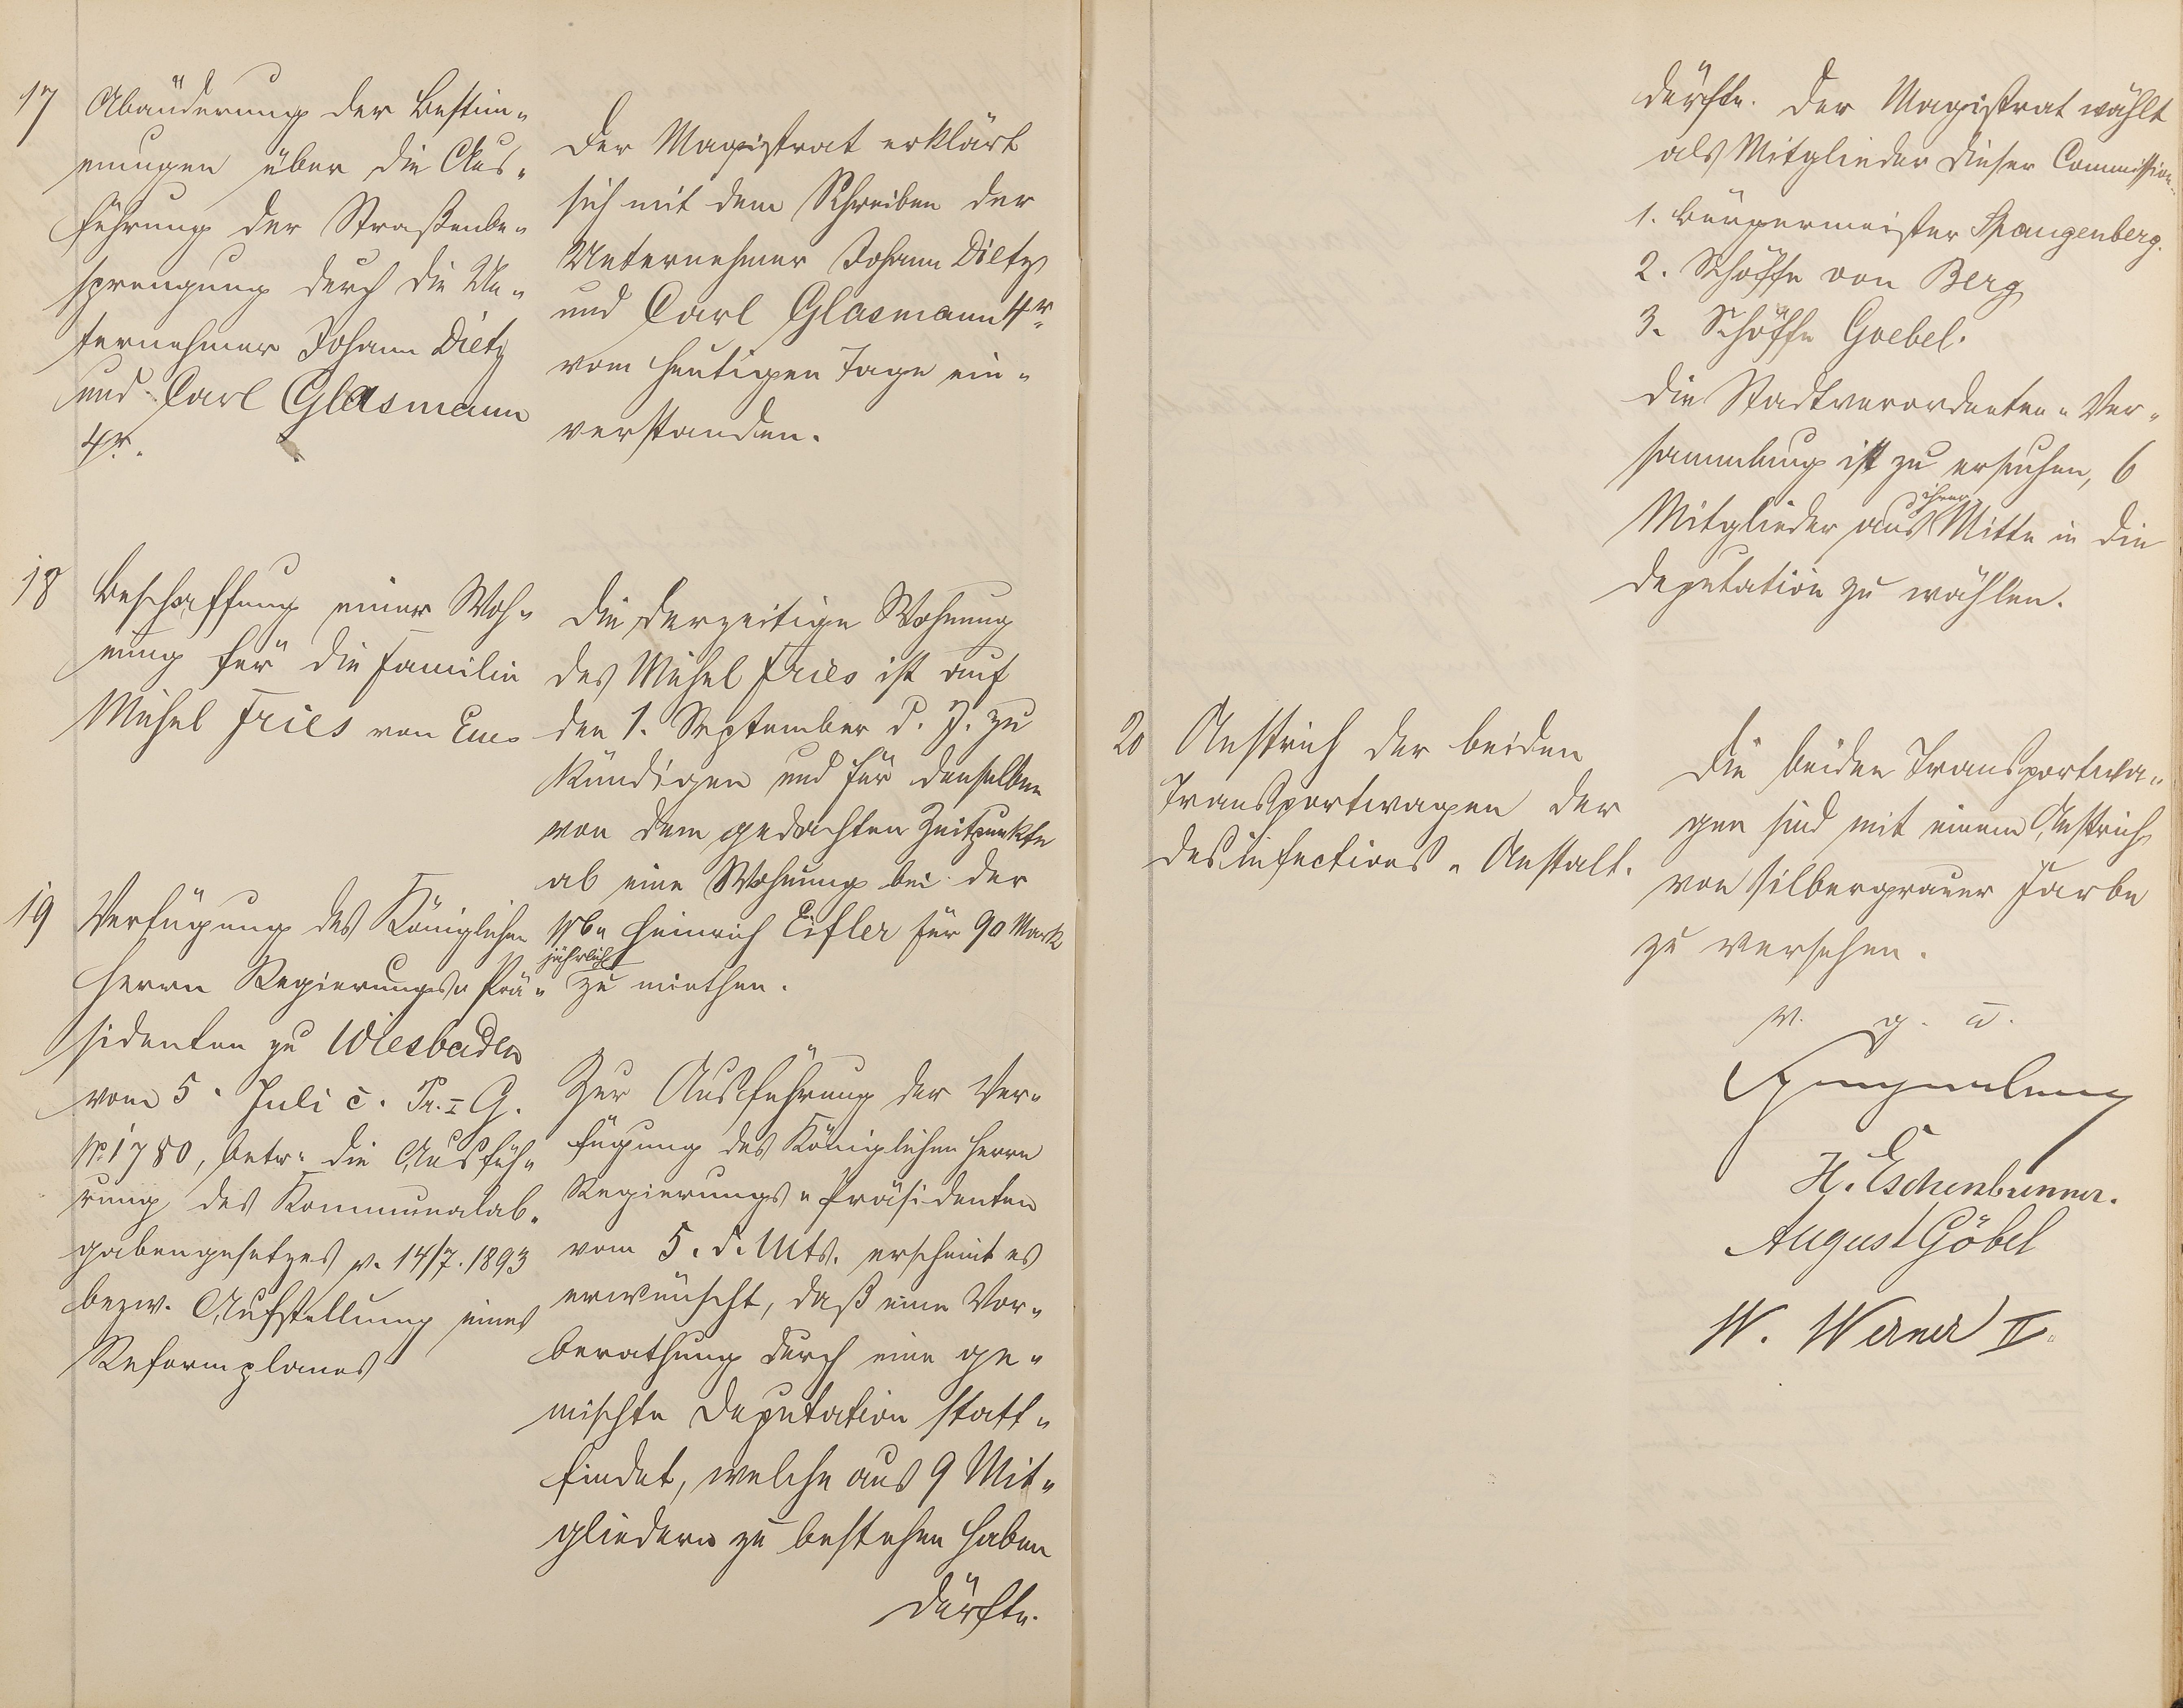 17
Abänderung der Bestim-
mungen über die Aus-
führung der Straßenbe-
sprengung durch die Un-
ternehmer Johann Dietz
und Carl Glasmann
4r.
Der Magistrat erklärt
sich mit dem Schreiben der
Unternehmer Johann Dietz
und Carl Glasmann 4r.
vom heutigen Tage ein-
verstanden.
18
Beschaffung einer Woh-
nung für die Familie
Michel Fries von Ems
Die derzeitige Wohnung
des Michel Fries ist auf
den 1. September d. J. zu
kündigen und für denselben
von dem gedachten Zeitpunkte
ab eine Wohnung bei der
Wb. Heinrich Eifler für 90 Mark
jährlich
zu miethen.
19
Verfügung des Königlichen
Herrn Regierungs-Prä-
sidenten zu Wiesbaden
vom 5. Juli c. Pr. I G.
No 1780, betr. die Ausfüh-
rung des Kommunalab-
gabengesetzes v. 14/7. 1893
bezw. Aufstellung eines
Reformplanes
Zur Ausführung der Ver-
fügung des Königlichen Herrn
Regierungs-Präsidenten
vom 5. d. Mts. erscheint es
erwünscht, daß eine Vor-
berathung durch eine ge-
mischte Deputation statt-
findet, welche aus 9 Mit-
gliedern zu bestehen haben
dürfte.
dürfte. Der Magistrat wählt
als Mitglieder dieser Commission
1. Bürgermeister Spangenberg.
2. Schöffe von Berg
3. Schöffe Goebel.
Die Stadtverordneten-Ver-
sammlung ist zu ersuchen, 6
Mitglieder aus ihrer Mitte in die
Deputation zu wählen.
20
Anstrich der beiden
Transportwagen der
Desinfections-Anstalt.
Die beiden Transportwa-
gen sind mit einem Anstrich
von silbergrauer Farbe
zu versehen.
v. g. u.
Spangenberg
H. Eschenbrenner.
August Göbel
W. Werner II.